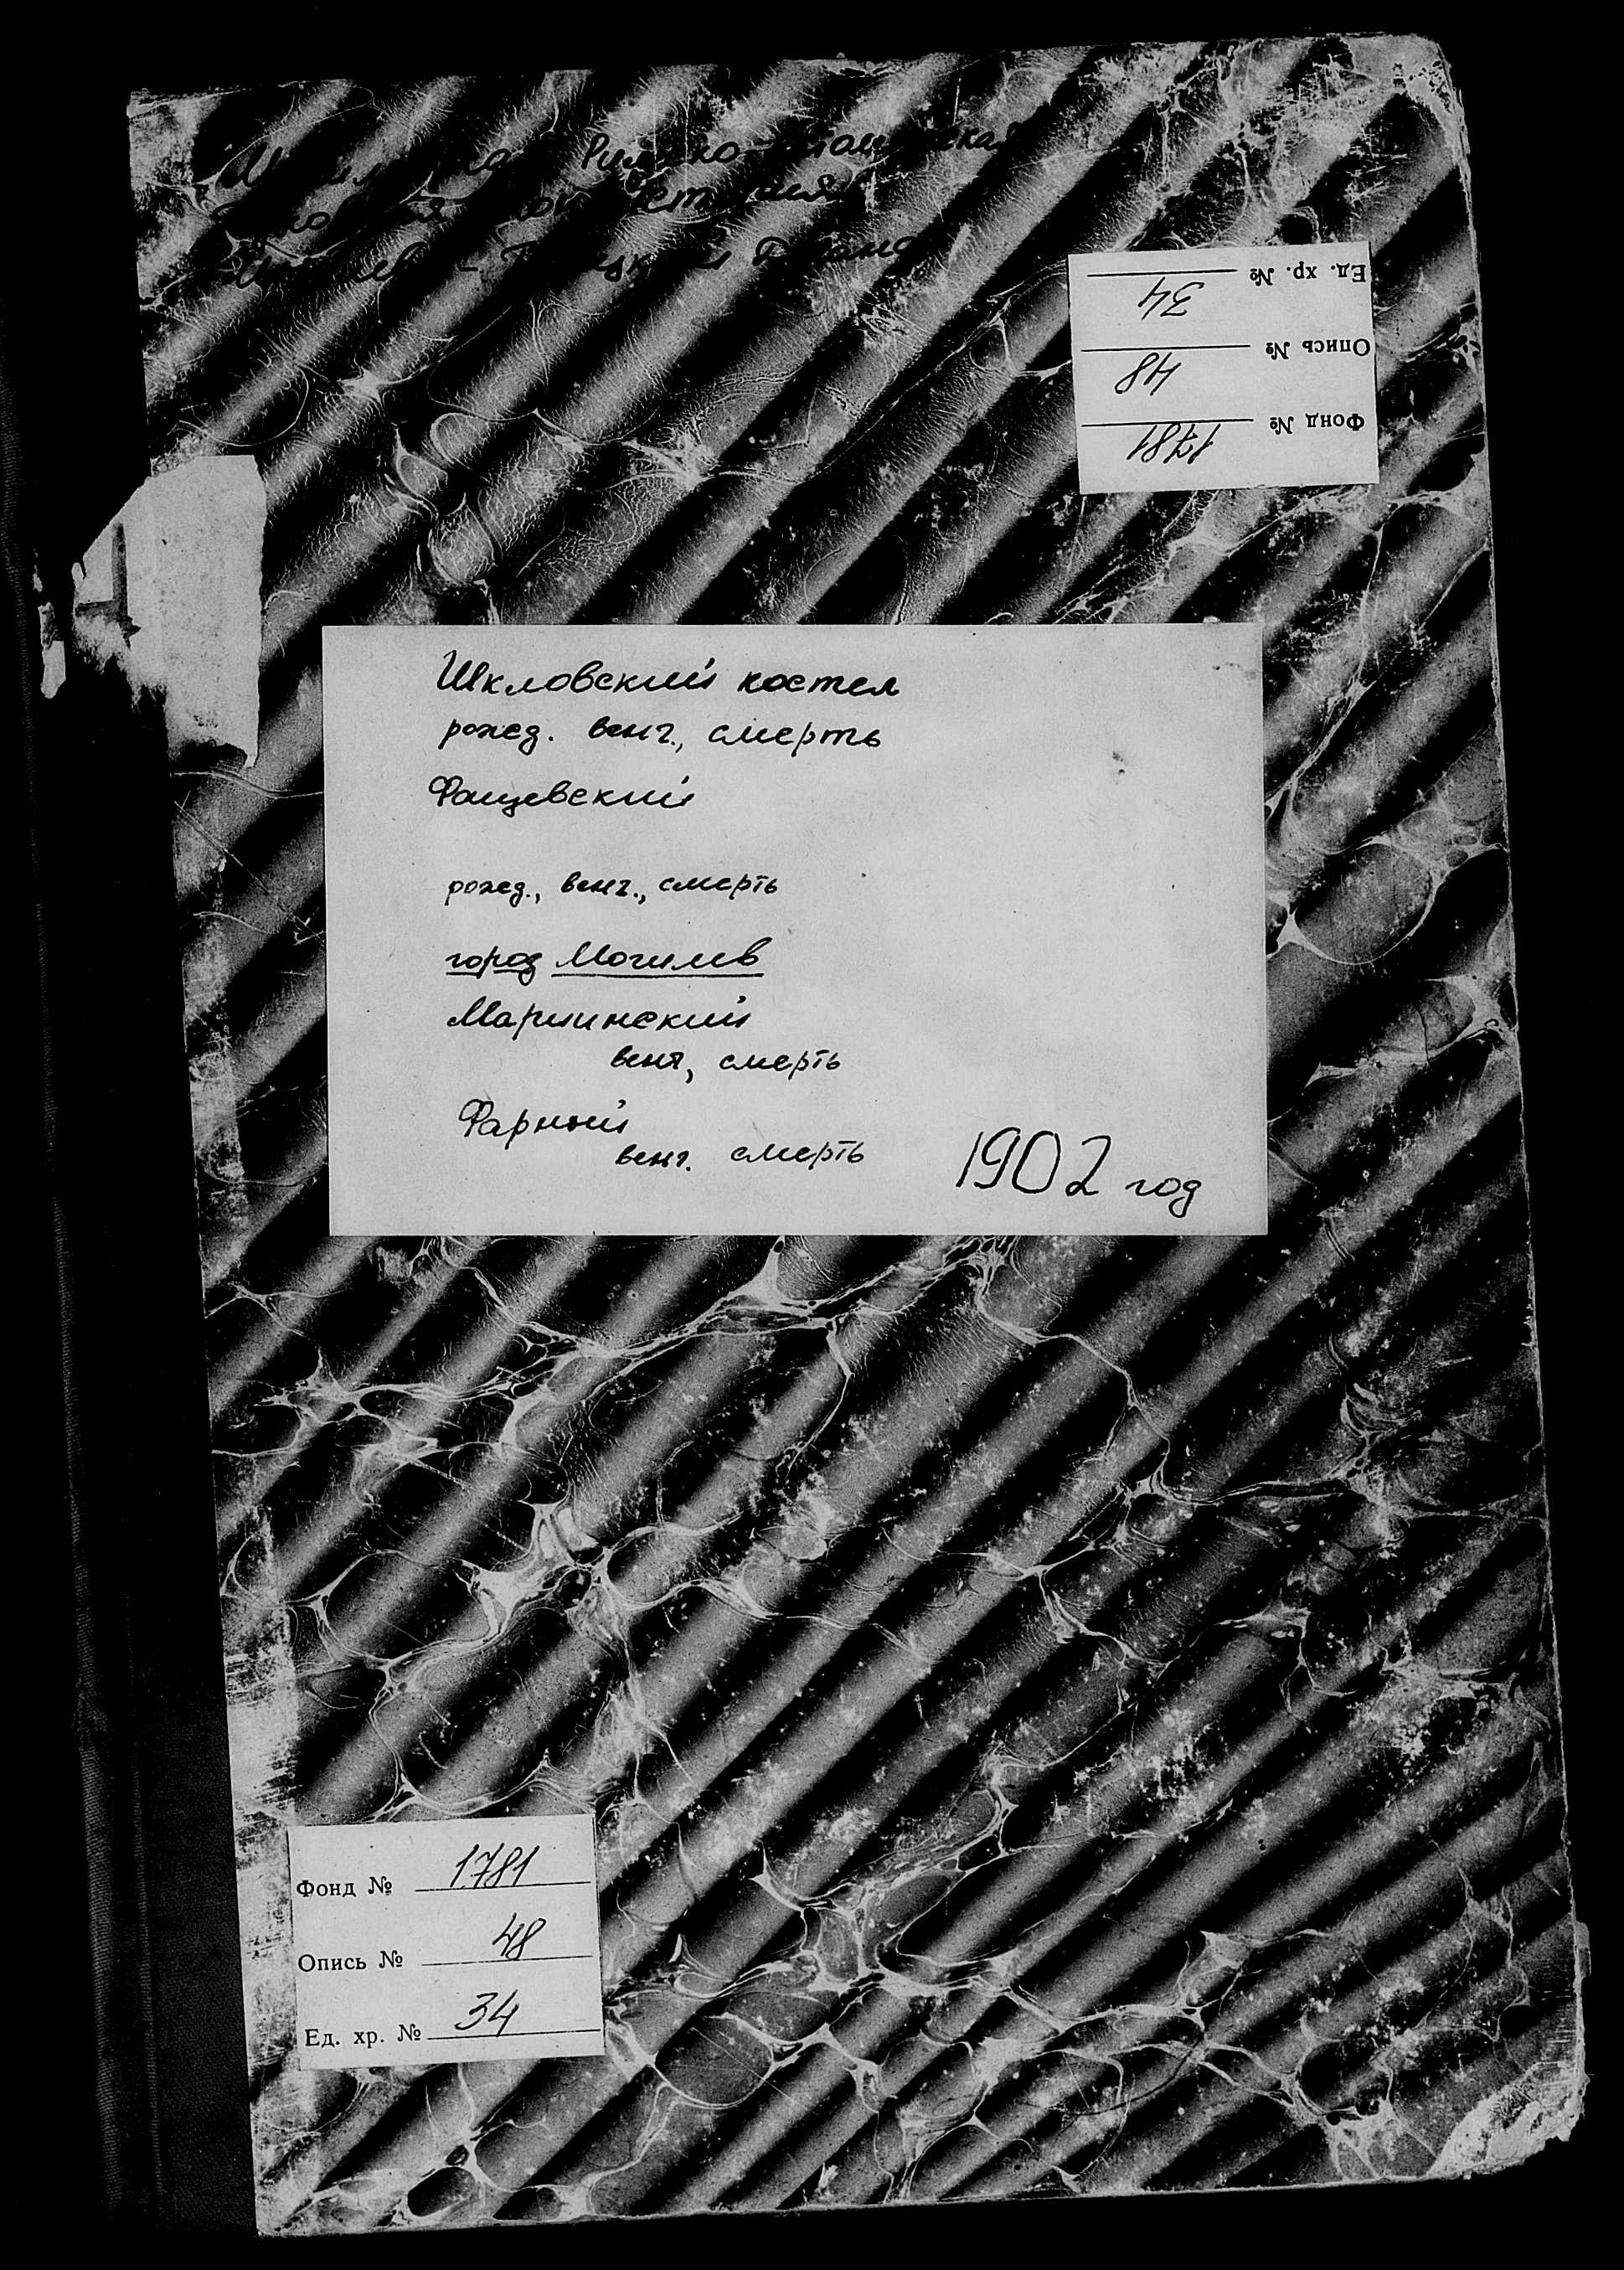 Римско-
Ед. хр. № 34
Опись № 48
Фонд № 1781
Шкловский костел
рожд. венч., смерть
Фащевский
рожд., венч., смерть
город Могилев
Мариинский
венч, смерть
Фарный
венч. смерть
1902 год
Фонд № 1781
Опись № 48
Ед. хр. № 34